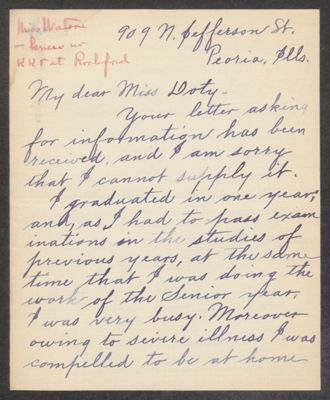 Miss Watson
- knew no
KKΓ at Rockford
909 N. Jefferson St.
Peoria, Ills.
My dear Miss Doty-
Your letter asking
for information has been
received, and I am sorry
that I cannot supply it.
I graduated in one year;
and, as I had to pass exam
inations on the studies of
previous years, at the same
time that I was doing the
work of the Senior year,
I was very busy. Moreover
owing to sivere illness I was
compelled to be at home